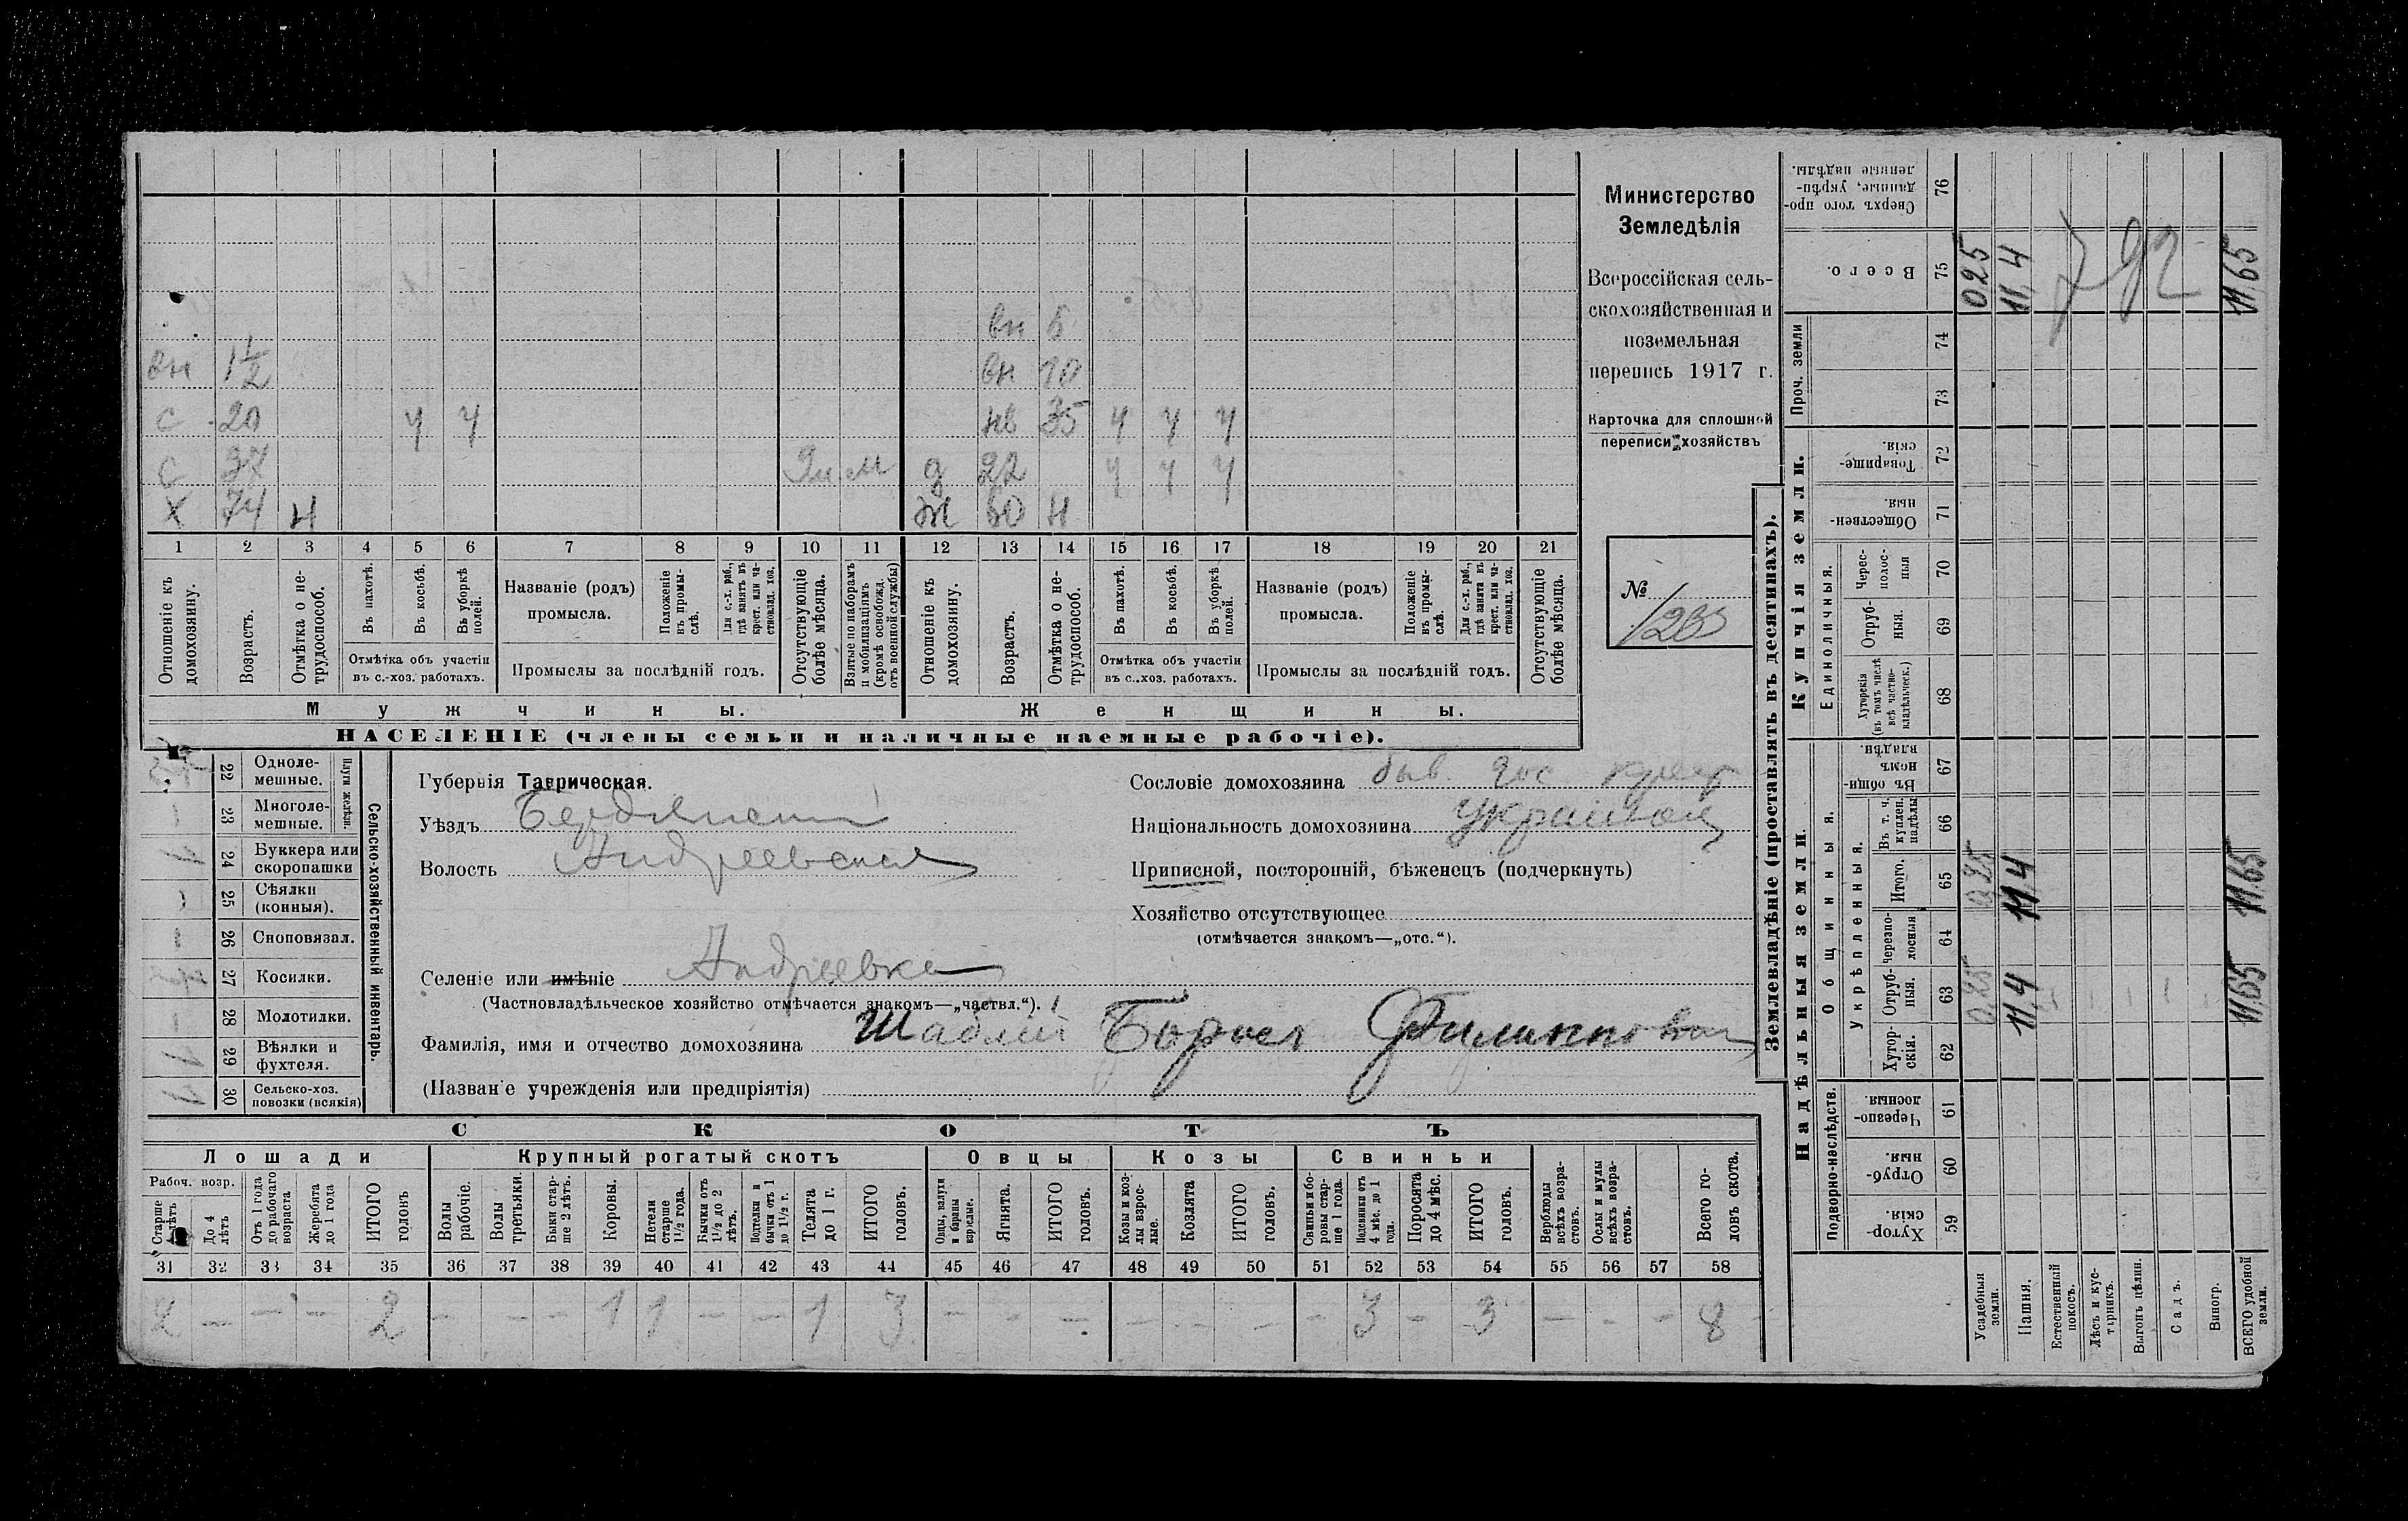 Министерство
Земледѣлія
Всероссійская сель-
скохозяйственная и
поземельная
перепись 1917 г.
Карточка для сплошной
переписи хозяйствъ
№
вн 1½
с 20 ч ч
с 37
х 74 н
вн
вн 10
нв 35 ч ч ч
д 22 ч ч ч
ж 60 н
1 2 3 4 5 6 7 8 9 10 11 12 13 14 15 16 17 18 19 20 21
Отношеніе къ домохозяину.
Возрастъ.
Отмѣтка о не-трудоспособ.
Въ пахотѣ.
Въ косьбѣ.
Въ уборкѣ полей.
Отмѣтка объ участіи въ с.-хоз. работахъ.
Названіе (родъ) промысла.
Положеніе въ промы-слѣ.
Для с.-х. раб., гдѣ занятъ въ крест. или ча-стновлад. хоз.
Промыслы за послѣдній годъ.
Отсутствующіе болѣе мѣсяца.
Взятые по наборамъ и мобилизаціямъ (кромѣ освобожд. отъ военной службы)
Отношеніе къ домохозяину.
Возрастъ.
Отмѣтка о не-трудоспособ.
Въ пахотѣ.
Въ косьбѣ.
Въ уборкѣ полей.
Отмѣтка объ участіи въ с.-хоз. работахъ.
Названіе (родъ) промысла.
Положеніе въ промы-слѣ.
Для с.-х. раб., гдѣ занята въ крест. или ча-стновлад. хоз.
Промыслы за послѣдній годъ.
Отсутствующіе болѣе мѣсяца.
Мужчины.
Женщины.
НАСЕЛЕНІЕ (члены семьи и наличные наемные рабочіе).
Сельско-хозяйственный инвентарь.
Плуги желѣзн.
22 Одноле-мешные.
23 Многоле-мешные.
24 Буккера или скоропашки 1
25 Сѣялки (конныя).
26 Сноповязал.
27 Косилки.
28 Молотилки.
29 Вѣялки и фухтеля. 1
30 Сельско-хоз. повозки (всякія) 1
Губернія Таврическая.
Уѣздъ Бердянскій
Волость Андреевская
Селеніе или имѣніе Андреевка
(Частновладѣльческое хозяйство отмѣчается знакомъ—„частвл.“).
Фамилія, имя и отчество домохозяина Шаблій Борисъ Филиппович
(Названіе учрежденія или предпріятія)
Сословіе домохозяина быв. гос крест
Національность домохозяина
Приписной, посторонній, бѣженецъ (подчеркнуть)
Хозяйство отсутствующее
(отмѣчается знакомъ—„отс.“).
СКОТЪ
Лошади
Крупный рогатый скотъ
Овцы
Козы
Свиньи
Рабоч. возр.
Старше лѣтъ
До 4 лѣтъ
Отъ 1 года до рабочаго возраста
Жеребята до 1 года
ИТОГО головъ
Волы рабочіе.
Волы третьяки.
Быки стар-ше 2 лѣтъ.
Коровы.
Нетели старше 1½ года.
Бычки отъ 1½ до 2 лѣтъ.
Подтелки и бычки отъ 1 до 1½ г.
Телята до 1 г.
ИТОГО головъ.
Овцы, валухи и бараны взрослые.
Ягнята.
ИТОГО головъ.
Козы и коз-лы взрос-лые.
Козлята
ИТОГО головъ.
Свиньи и бо-ровы стар-ше 1 года.
Подсвинки отъ 4 мѣс. до 1 года.
Поросята до 4 мѣс.
ИТОГО головъ.
Верблюды всѣхъ возра-стовъ.
Ослы и мулы всѣхъ возра-стовъ.
Всего го-ловъ скота.
31 32 33 34 35 36 37 38 39 40 41 42 43 44 45 46 47 48 49 50 51 52 53 54 55 56 57 58
2 — — — 2 — — — 1 1 — — 1 3 — — — — — — — 3 — 3 — — — 8
Землевладѣніе (проставлять въ десятинахъ).
Надѣльныя земли.
Купчія земли.
Проч. земли
Подворно-наслѣдств.
Общинныя.
Укрѣпленныя.
Единоличныя.
Сверхъ того про-данные, укрѣп-ленные надѣлы. 76
Всего. 75 025 11,4 11,65
792
74
73
Товарище-скія. 72
Обществен-ныя. 71
Черес-полос-ныя 70
Отруб-ныя. 69
Хуторскія (въ томъ числѣ всѣ частно-владѣльческ.) 68
Въ общин-номъ владѣн. 67
Въ т. ч. куплен. надѣлы 66
Итого. 65 0,25 11,4 11,65
черезпо-лосныя 64
Отруб-ныя. 63 0,25 11,4 11,65
Хутор-скія. 62
Черезпо-лосныя. 61
Отруб-ныя. 60
Хутор-скія. 59
Усадебныя земли.
Пашня.
Естественный покосъ.
Лѣсъ и кус-тарникъ.
Выгонъ цѣлин.
Садъ.
Виногр.
ВСЕГО удобной земли.